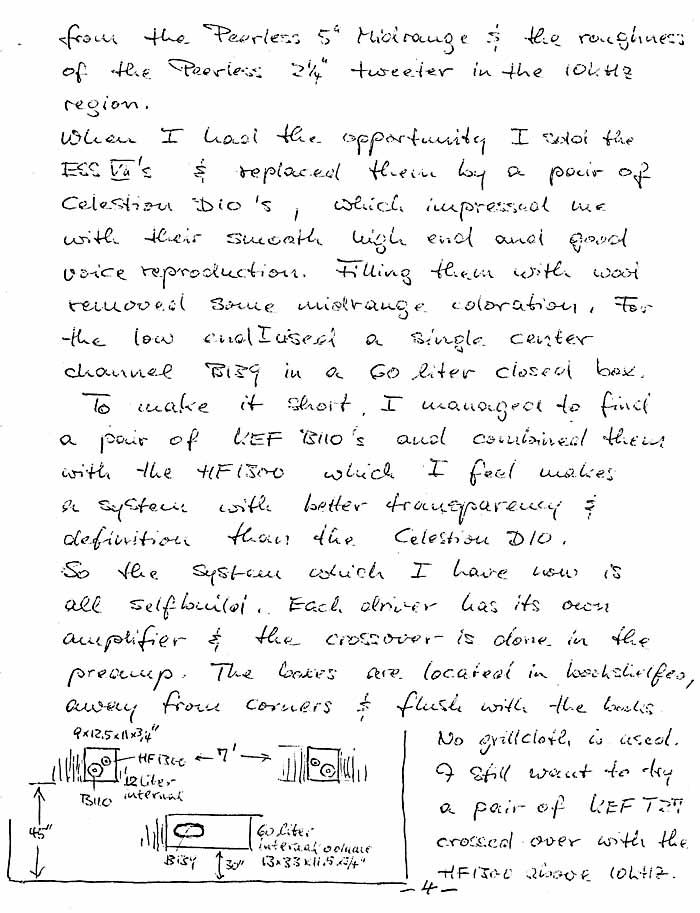 from the Peerless 5" Midrange & the roughness
of the Peerless 2¼" tweeter in the 10kHz
region.
When I had the opportunity I sold the
ESS Va's & replaced them by a pair of
Celestion D10's, which impressed me
with their smooth high end and good
voice reproduction. Filling them with wool
removed some midrange coloration. For
the low end I used a single center
channel B139 in a 60 liter closed box.
To make it short, I managed to find
a pair of KEF B110's and combined them
with the HF1300 which I feel makes
a system with better transparency &
definition than the Celestion D10.
So the system which I have now is
all selfbuild. Each driver has its own
amplifier & the crossover is done in the
preamp. The boxes are located in bookshelfes,
away from corners & flush with the books.
No grillcloth is used.
I still want to try
a pair of KEF T27
crossed over with the
HF1300 above 10kHz.
9x12.5x11x3/4"
HF1300 ← 7' →
12 liter
internal
B110
45"
60 liter
internal volume
13x33x11.5x3/4"
B139
30"
- 4 -